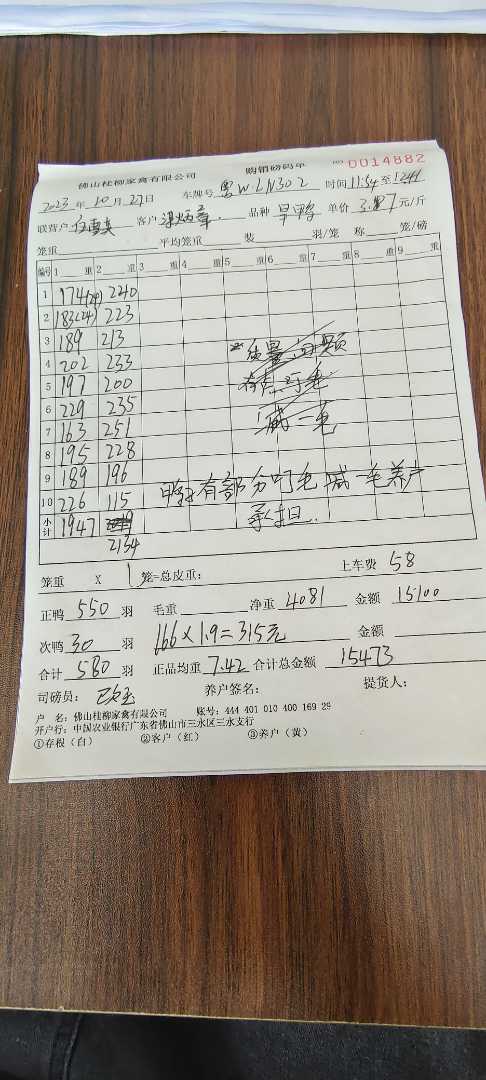 佛山桂柳家禽有限公司 购销磅码单 NO 0014882
2023年10月27日 车牌号 粤WLN302 时间 11:54 至 1244
联营户 客户 品种 旱鸭 单价 3.7 元/斤
笼重 平均笼重 装 羽/笼 称 笼/磅
编号 1 重 2 重 3 重 4 重 5 重 6 重 7 重 8 重 9 重
1 174(24) 240
2 183(24) 223
3 189 213
4 202 233
5 197 200
6 229 235
7 163 251
8 195 228
9 189 196
10 226 115
小计 1947
2134
质量问题
有点叮毛
减一毛
鸭子有部分叮毛减一毛养户
承担.
笼重 X 1 笼=总皮重: 上车费 58
正鸭 550 羽 毛重 净重 4081 金额 15100
次鸭 30 羽 166×1.9=315元 金额
合计 580 羽 正品均重 7.42 合计总金额 15473
司磅员: 养户签名: 提货人:
户 名: 佛山桂柳家禽有限公司 账号: 444 401 010 400 169 29
开户行: 中国农业银行广东省佛山市三水区三水支行
①存根(白) ②客户(红) ③养户(黄)